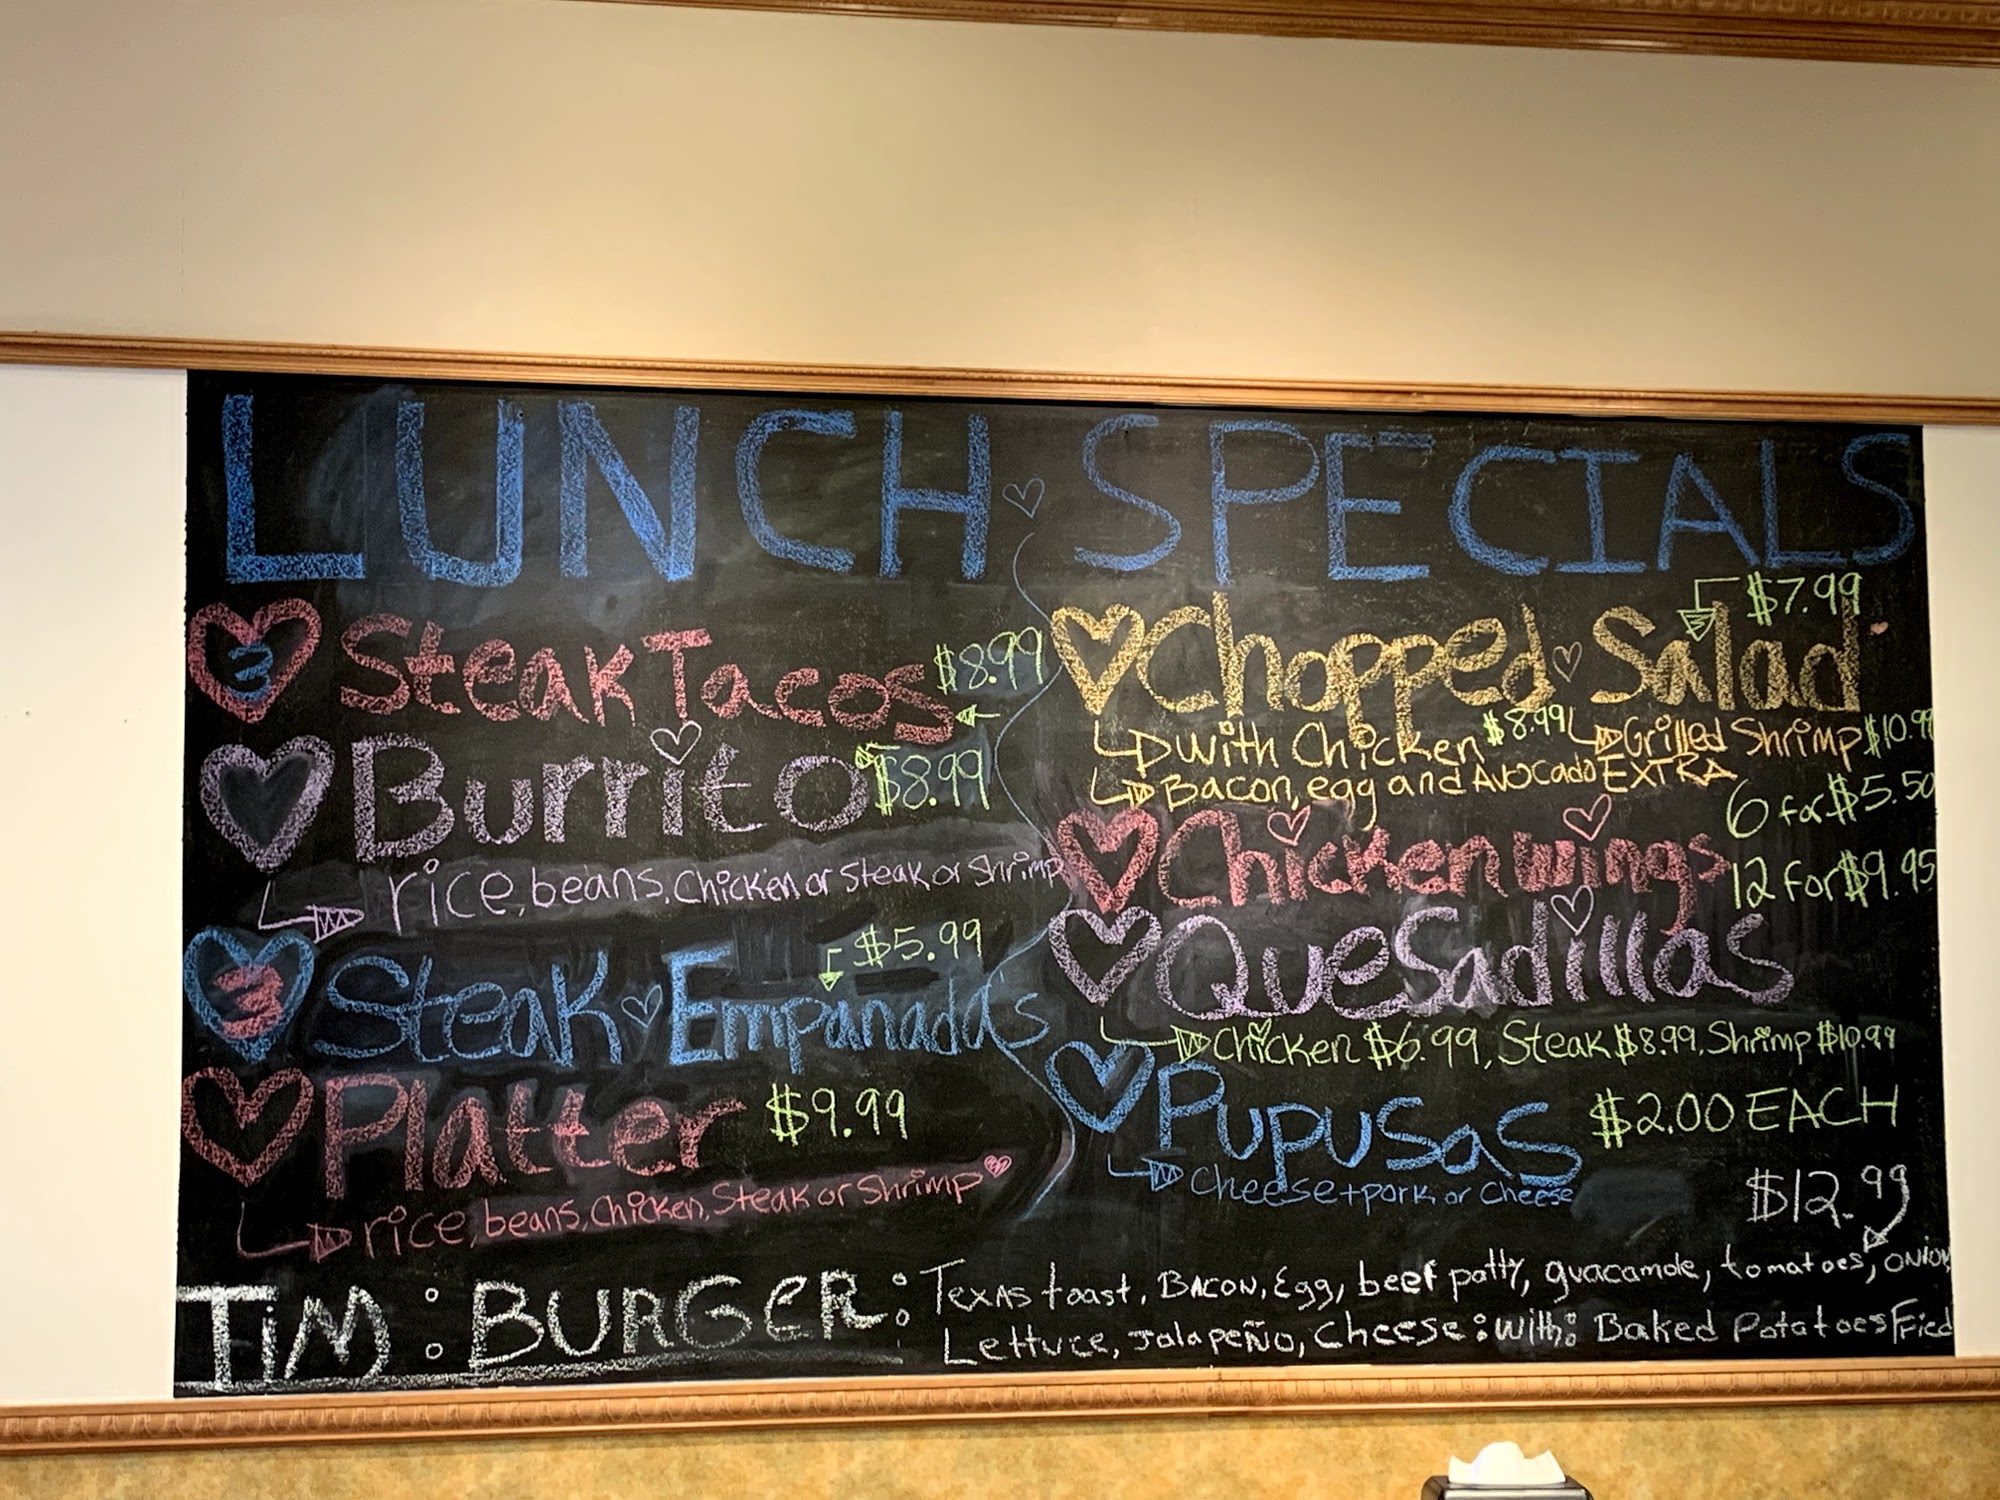 LUNCH SPECIALS
3 Steak Tacos $8.99
Burrito $8.99
rice, beans, Chicken or Steak or Shrimp
3 Steak Empanada's $5.99
Platter $9.99
rice, beans, Chicken, Steak or Shrimp
Chopped Salad $7.99
with Chicken $8.99 Grilled Shrimp $10.99
Bacon, egg and Avocado EXTRA
Chicken wings 6 for $5.50
12 for $9.95
Quesadillas
Chicken $6.99, Steak $8.99, Shrimp $10.99
Pupusas $2.00 EACH
Cheese+pork or Cheese
$12.99
TiM: BURGeR: Texas toast, BACON, Egg, beef patty, guacamole, tomatoes, ONION,
Lettuce, Jalapeño, Cheese: with: Baked Potatoes Fried